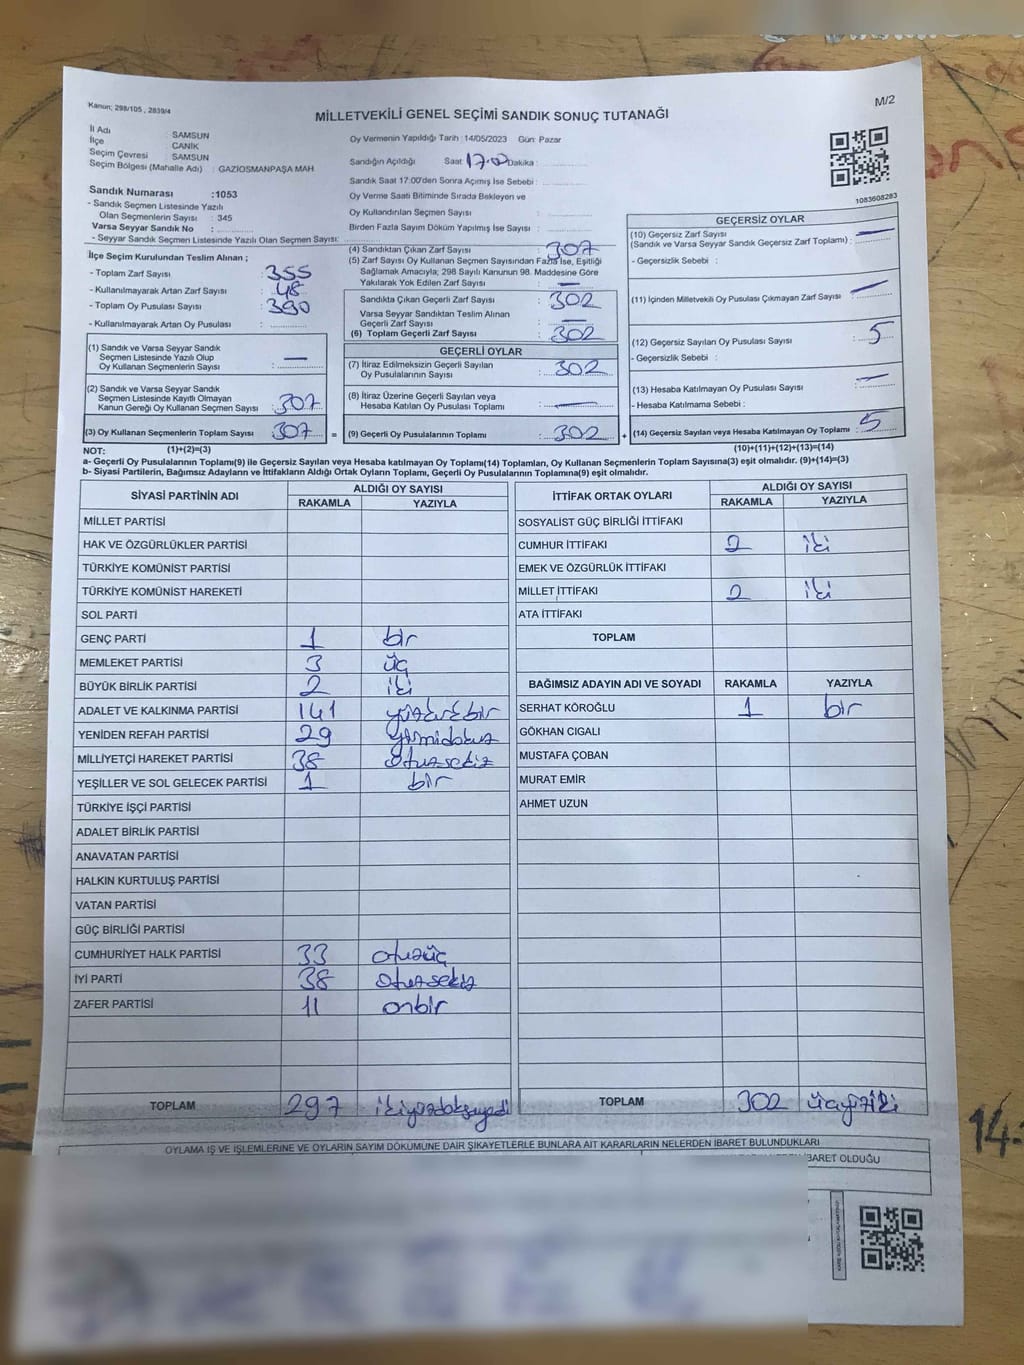 Kanun; 298/105 , 2839/4
M/2
MİLLETVEKİLİ GENEL SEÇİMİ SANDIK SONUÇ TUTANAĞI
İl Adı : SAMSUN
İlçe : CANİK
Seçim Çevresi : SAMSUN
Seçim Bölgesi (Mahalle Adı) : GAZİOSMANPAŞA MAH
Sandık Numarası :1053
- Sandık Seçmen Listesinde Yazılı
Olan Seçmenlerin Sayısı : 345
Varsa Seyyar Sandık No :
- Seyyar Sandık Seçmen Listesinde Yazılı Olan Seçmen Sayısı:
İlçe Seçim Kurulundan Teslim Alınan ;
- Toplam Zarf Sayısı : 355
- Kullanılmayarak Artan Zarf Sayısı : 48
- Toplam Oy Pusulası Sayısı : 390
- Kullanılmayarak Artan Oy Pusulası :
(1) Sandık ve Varsa Seyyar Sandık
Seçmen Listesinde Yazılı Olup
Oy Kullanan Seçmenlerin Sayısı : —
(2) Sandık ve Varsa Seyyar Sandık
Seçmen Listesinde Kayıtlı Olmayan
Kanun Gereği Oy Kullanan Seçmen Sayısı : 307
(3) Oy Kullanan Seçmenlerin Toplam Sayısı : 307 =
Oy Vermenin Yapıldığı Tarih :14/05/2023 Gün: Pazar
Sandığın Açıldığı Saat 17:00 Dakika :
Sandık Saat 17:00'den Sonra Açımış İse Sebebi :
Oy Verme Saati Bitiminde Sırada Bekleyen ve
Oy Kullandırılan Seçmen Sayısı :
Birden Fazla Sayım Döküm Yapılmış İse Sayısı :
(4) Sandıktan Çıkan Zarf Sayısı : 307
(5) Zarf Sayısı Oy Kullanan Seçmen Sayısından Fazla İse, Eşitliği
Sağlamak Amacıyla; 298 Sayılı Kanunun 98. Maddesine Göre
Yakılarak Yok Edilen Zarf Sayısı : —
Sandıkta Çıkan Geçerli Zarf Sayısı : 302
Varsa Seyyar Sandıktan Teslim Alınan
Geçerli Zarf Sayısı : —
(6) Toplam Geçerli Zarf Sayısı : 302
GEÇERLİ OYLAR
(7) İtiraz Edilmeksizin Geçerli Sayılan
Oy Pusulalarının Sayısı : 302
(8) İtiraz Üzerine Geçerli Sayılan veya
Hesaba Katılan Oy Pusulası Toplamı : —
(9) Geçerli Oy Pusulalarının Toplamı : 302 +
1083608283
GEÇERSİZ OYLAR
(10) Geçersiz Zarf Sayısı
(Sandık ve Varsa Seyyar Sandık Geçersiz Zarf Toplamı) : —
- Geçersizlik Sebebi :
(11) İçinden Milletvekili Oy Pusulası Çıkmayan Zarf Sayısı : —
(12) Geçersiz Sayılan Oy Pusulası Sayısı : 5
- Geçersizlik Sebebi :
(13) Hesaba Katılmayan Oy Pusulası Sayısı : —
- Hesaba Katılmama Sebebi :
(14) Geçersiz Sayılan veya Hesaba Katılmayan Oy Toplamı : 5
NOT: (1)+(2)=(3) (10)+(11)+(12)+(13)=(14)
a- Geçerli Oy Pusulalarının Toplamı(9) ile Geçersiz Sayılan veya Hesaba katılmayan Oy Toplamı(14) Toplamları, Oy Kullanan Seçmenlerin Toplam Sayısına(3) eşit olmalıdır. (9)+(14)=(3)
b- Siyasi Partilerin, Bağımsız Adayların ve İttifakların Aldığı Ortak Oyların Toplamı, Geçerli Oy Pusulalarının Toplamına(9) eşit olmalıdır.
SİYASİ PARTİNİN ADI ALDIĞI OY SAYISI
RAKAMLA YAZIYLA
MİLLET PARTİSİ
HAK VE ÖZGÜRLÜKLER PARTİSİ
TÜRKİYE KOMÜNİST PARTİSİ
TÜRKİYE KOMÜNİST HAREKETİ
SOL PARTİ
GENÇ PARTİ 1 bir
MEMLEKET PARTİSİ 3 üç
BÜYÜK BİRLİK PARTİSİ 2 iki
ADALET VE KALKINMA PARTİSİ 141 yüzkırkbir
YENİDEN REFAH PARTİSİ 29 yirmidokuz
MİLLİYETÇİ HAREKET PARTİSİ 38 otuzsekiz
YEŞİLLER VE SOL GELECEK PARTİSİ 1 bir
TÜRKİYE İŞÇİ PARTİSİ
ADALET BİRLİK PARTİSİ
ANAVATAN PARTİSİ
HALKIN KURTULUŞ PARTİSİ
VATAN PARTİSİ
GÜÇ BİRLİĞİ PARTİSİ
CUMHURİYET HALK PARTİSİ 33 otuzüç
İYİ PARTİ 38 otuzsekiz
ZAFER PARTİSİ 11 onbir
TOPLAM 297 ikiyüzdoksayedi
İTTİFAK ORTAK OYLARI ALDIĞI OY SAYISI
RAKAMLA YAZIYLA
SOSYALİST GÜÇ BİRLİĞİ İTTİFAKI
CUMHUR İTTİFAKI 2 iki
EMEK VE ÖZGÜRLÜK İTTİFAKI
MİLLET İTTİFAKI 2 iki
ATA İTTİFAKI
TOPLAM
BAĞIMSIZ ADAYIN ADI VE SOYADI RAKAMLA YAZIYLA
SERHAT KÖROĞLU 1 bir
GÖKHAN CIGALI
MUSTAFA ÇOBAN
MURAT EMİR
AHMET UZUN
TOPLAM 302 üçyüziki
OYLAMA İŞ VE İŞLEMLERİNE VE OYLARIN SAYIM DÖKÜMÜNE DAİR ŞİKAYETLERLE BUNLARA AİT KARARLARIN NELERDEN İBARET BULUNDUKLARI
İBARET OLDUĞU
14